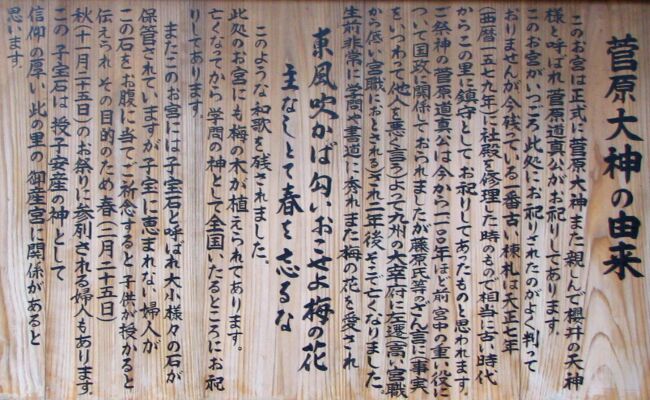 菅原大神の由来
このお宮は正式に菅原大神また親しんで櫻井の天神
様と呼ばれ菅原道真公がお祀りしてあります。
このお宮がいつころ此処にお祀りされたのがよく判って
おりませんが今残っている一番古い棟札は天正七年
(西暦一五七九年)に社殿を修理した時のもので相当に古い時代
からこの里に鎮守としてお祀りしてあったものと思われます。
ご祭神の菅原道真公は今から一一〇〇年ほど前宮中の重い役に
ついて国政に関係しておられましたが藤原氏等のざん言に(事実
を、いつわって他人を悪く言う)よって九州の大宰府に左遷(高い官職
から低い官職におとされる)され二年後、そこで亡くなりました。
生前非常に学問や書道に秀れまた梅の花を愛され
東風吹かば匂いおこせよ梅の花
主なしとて春を忘るな
このような和歌を残されました。
此処のお宮にも梅の木が植えられてあります。
亡くなってから学問の神として全国いたるところにお祀
りしてあります。
またこのお宮には子宝石と呼ばれ大小様々の石が
保管されていますが子宝に恵まれない婦人が
この石をお腹に当てご祈念すると子供が授かると
伝えられその目的のため春(二月二十五日)
秋(十一月二十五日)のお祭りに参列される婦人もあります。
この子宝石は授子安産の神として
信仰の厚い此の里の御産宮に関係があると
思います。